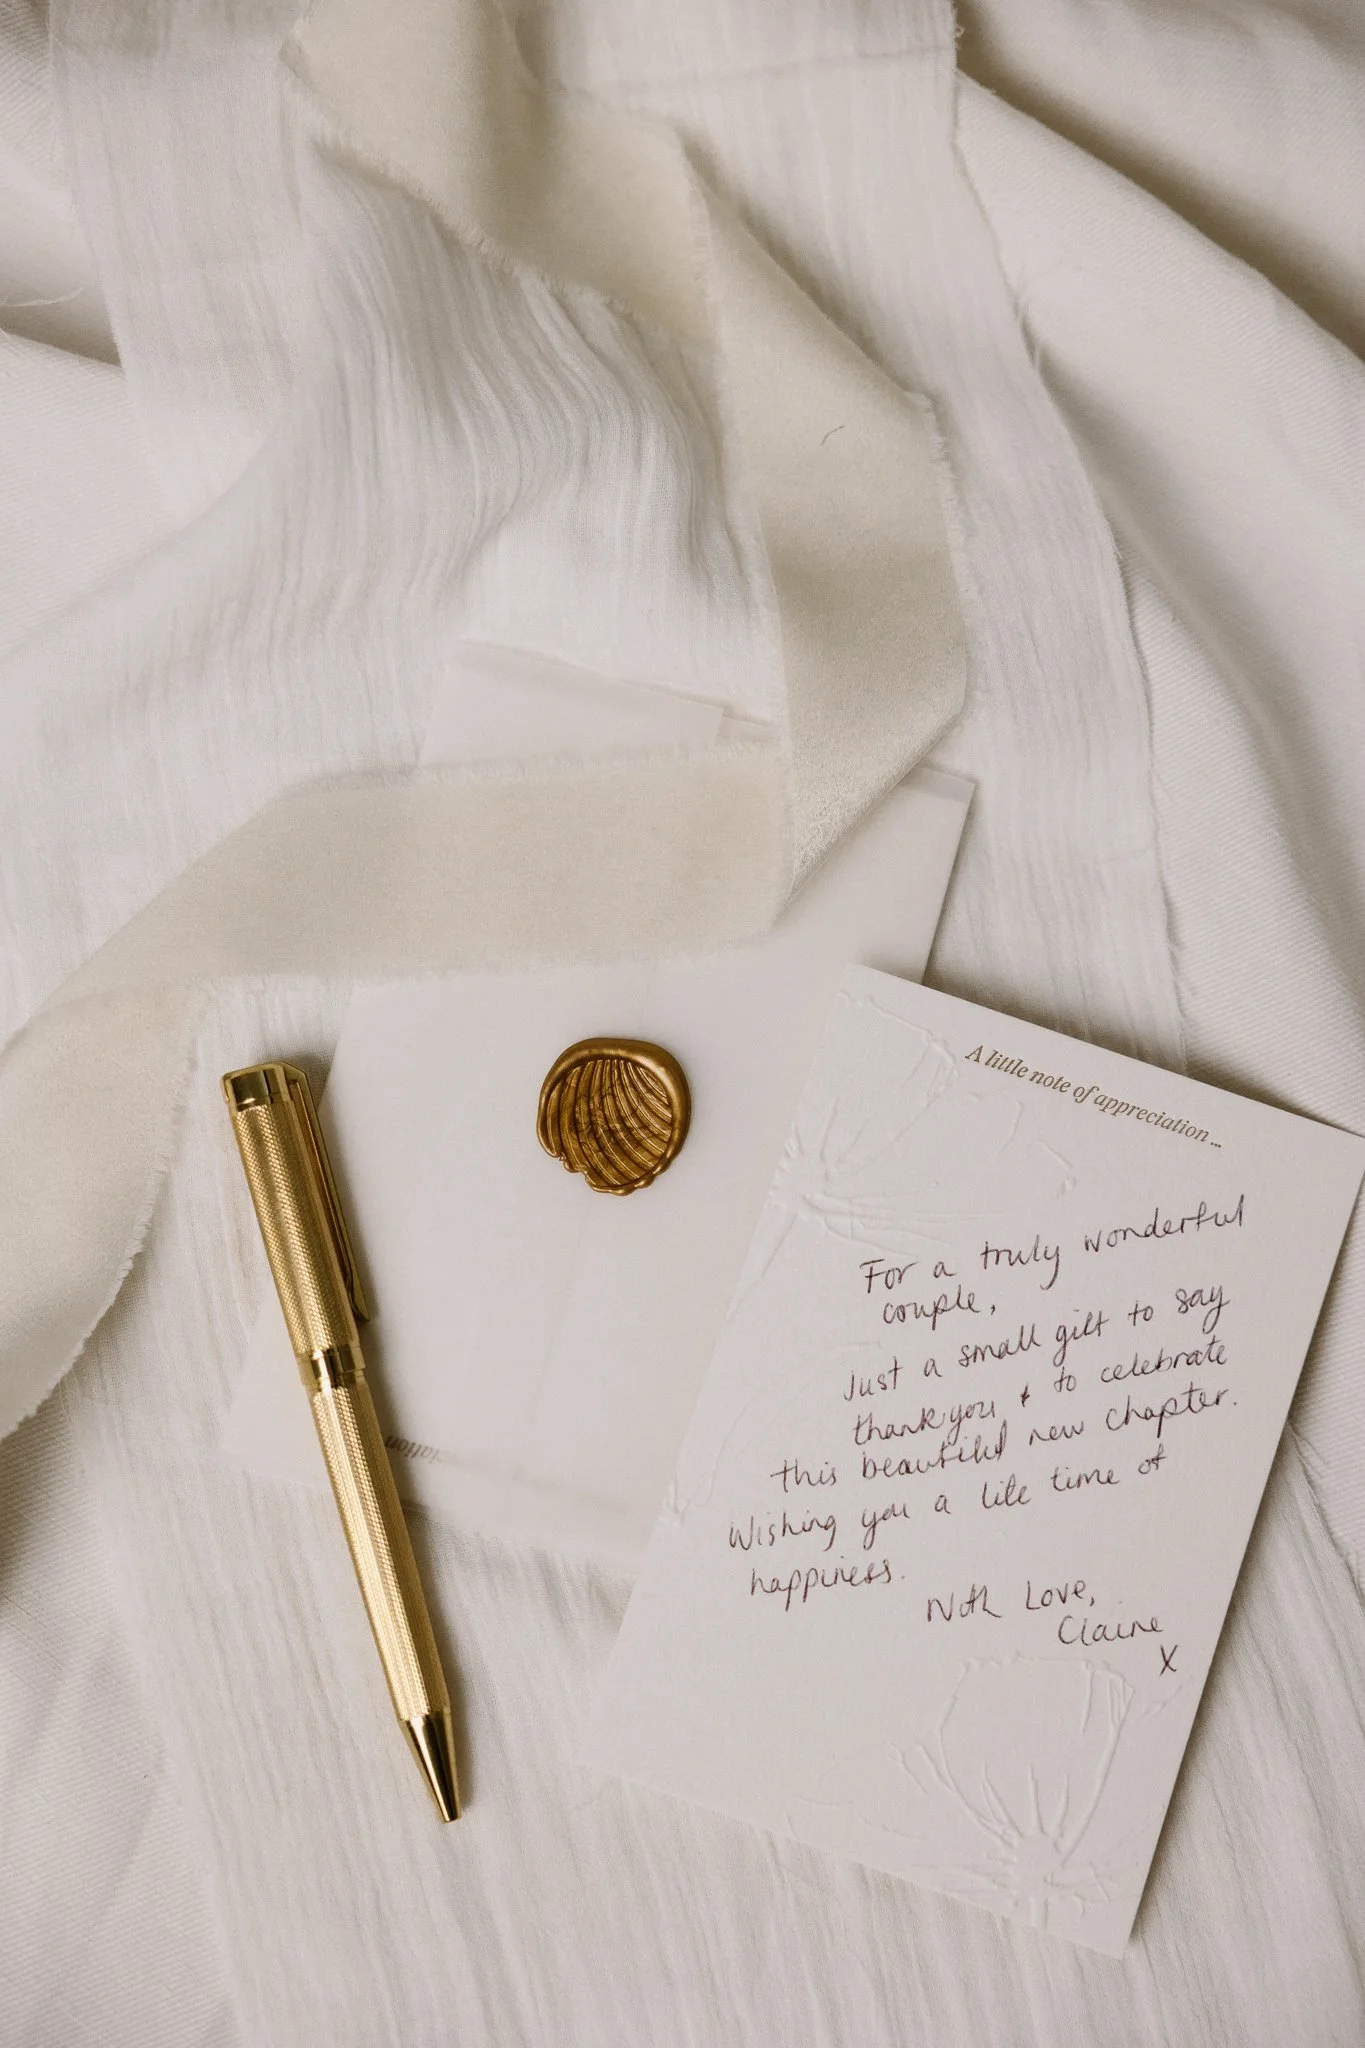 A little note of appreciation...
For a truly wonderful
couple,
Just a small gift to say
thank you & to celebrate
this beautiful new chapter.
Wishing you a life time of
happiness.
With Love,
Claire
X
iation